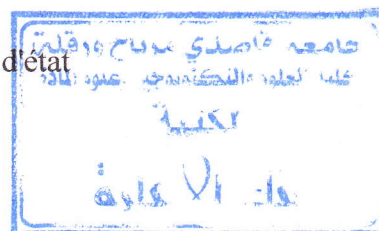 d'état
جامعة قاصدي مرباح ورقلة
كلية العلوم والتكنولوجيا وعلوم المادة
المكتبة